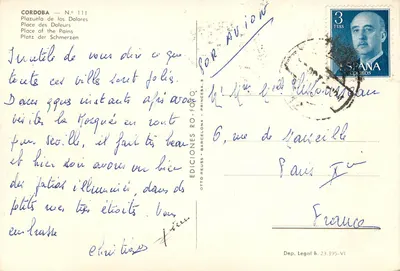 CORDOBA — N.° 111
Plazuela de los Dolores
Place des Doleurs
Place of the Pains
Platz der Schmerzen
Inutile de vous dire que
toute ces ville sont jolies.
Dans qques instants après avoir
visités la Mosquée en route
pour Séville, il fait très beau
et hier soir avons vu bien
des patios illuminés, dans de
petites rues très étroites. Vous
embrasse
Christiane
EDICIONES FO-ROPO
PAR AVION
3
PTAS
ESPAÑA
CORREOS
Mr Mme
6, rue de Marseille
Paris Xème
France
Dep. Legal B. 23.595-VI